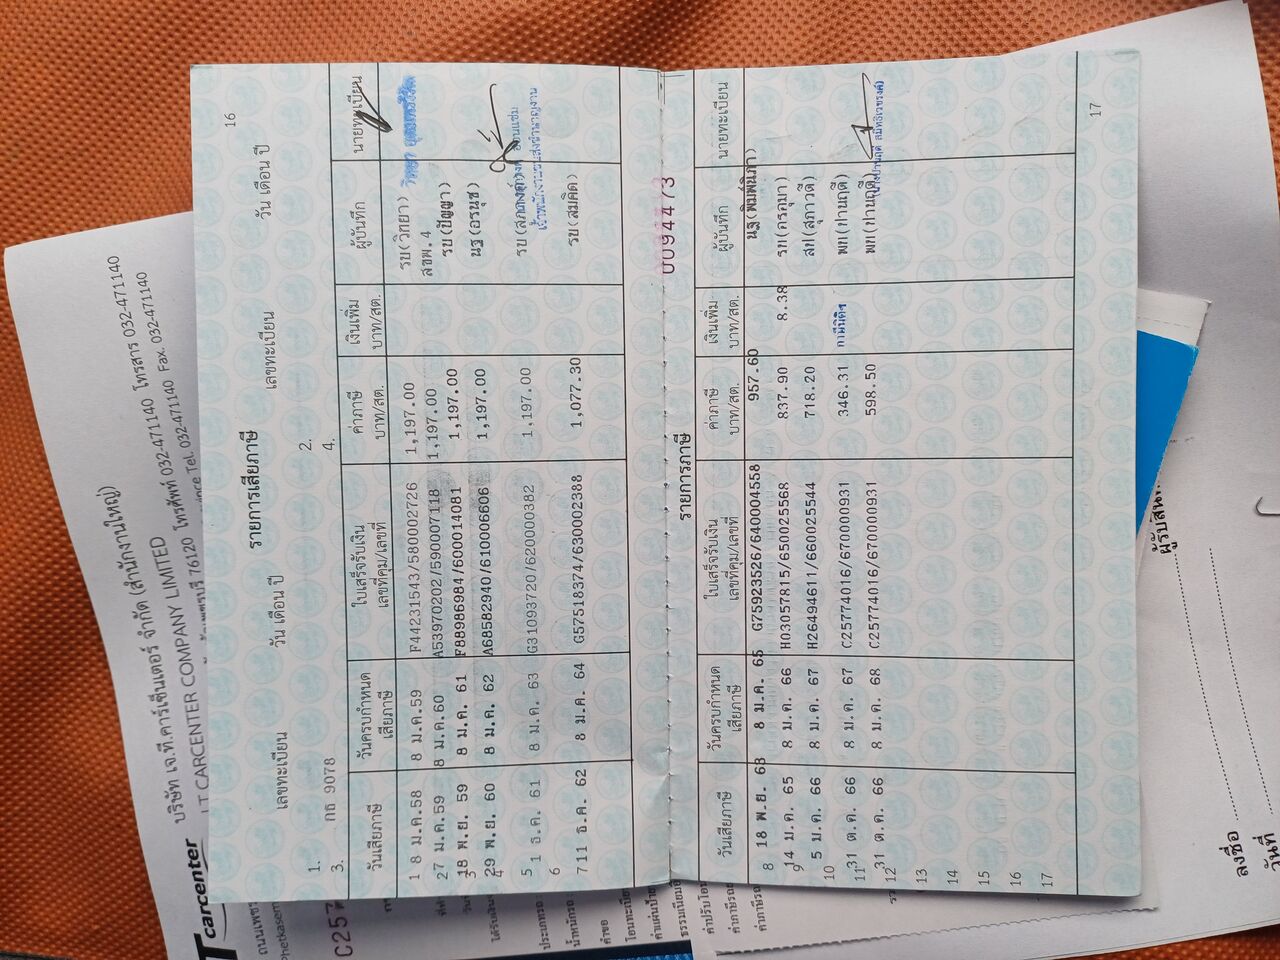 16
รายการเสียภาษี
เลขทะเบียน วัน เดือน ปี เลขทะเบียน วัน เดือน ปี
1. 2.
3. กธ 9078 4.
วันเสียภาษี วันครบกำหนดเสียภาษี ใบเสร็จรับเงิน เลขที่คุม/เลขที่ ค่าภาษี บาท/สต. เงินเพิ่ม บาท/สต. ผู้บันทึก นายทะเบียน
1 8 ม.ค.58 8 ม.ค.59 F44231543/580002726 1,197.00 รบ(วิทยา)
27 ม.ค.59 8 ม.ค.60 A53970202/590007118 1,197.00 สขพ.4
18 พ.ย. 59 8 ม.ค. 61 F88986984/600014081 1,197.00 รบ(ปัญญา)
29 พ.ย. 60 8 ม.ค. 62 A68582940/610006606 1,197.00 นฐ(อรนุช)
5 1 ธ.ค. 61 8 ม.ค. 63 G31093720/620000382 1,197.00
เจ้าพนักงานขนส่งชำนาญงาน
6
7 11 ธ.ค. 62 8 ม.ค. 64 G57518374/630002388 1,077.30 รบ(สมคิด)
0094473
รายการภาษี
วันเสียภาษี วันครบกำหนดเสียภาษี ใบเสร็จรับเงิน เลขที่คุม/เลขที่ ค่าภาษี บาท/สต. เงินเพิ่ม บาท/สต. ผู้บันทึก นายทะเบียน
8 18 พ.ย. 63 8 ม.ค. 65 G75923526/640004558 957.60
9 14 ม.ค. 65 8 ม.ค. 66 H03057815/650025568 837.90 8.38
10 5 ม.ค. 66 8 ม.ค. 67 H26494611/660025544 718.20 สท(สุภาวดี)
11 31 ต.ค. 66 8 ม.ค. 67 C25774016/670000931 346.31
12 31 ต.ค. 66 8 ม.ค. 68 C25774016/670000931 598.50
13
14
15
16
17
17
carcenter
บริษัท เจ.ที.คาร์เซ็นเตอร์ จำกัด (สำนักงานใหญ่)
J.T CARCENTER COMPANY LIMITED
76120 โทรศัพท์ 032-471140 โทรสาร 032-471140
Tel. 032-471140 Fax. 032-471140
ลงชื่อ
วันที่